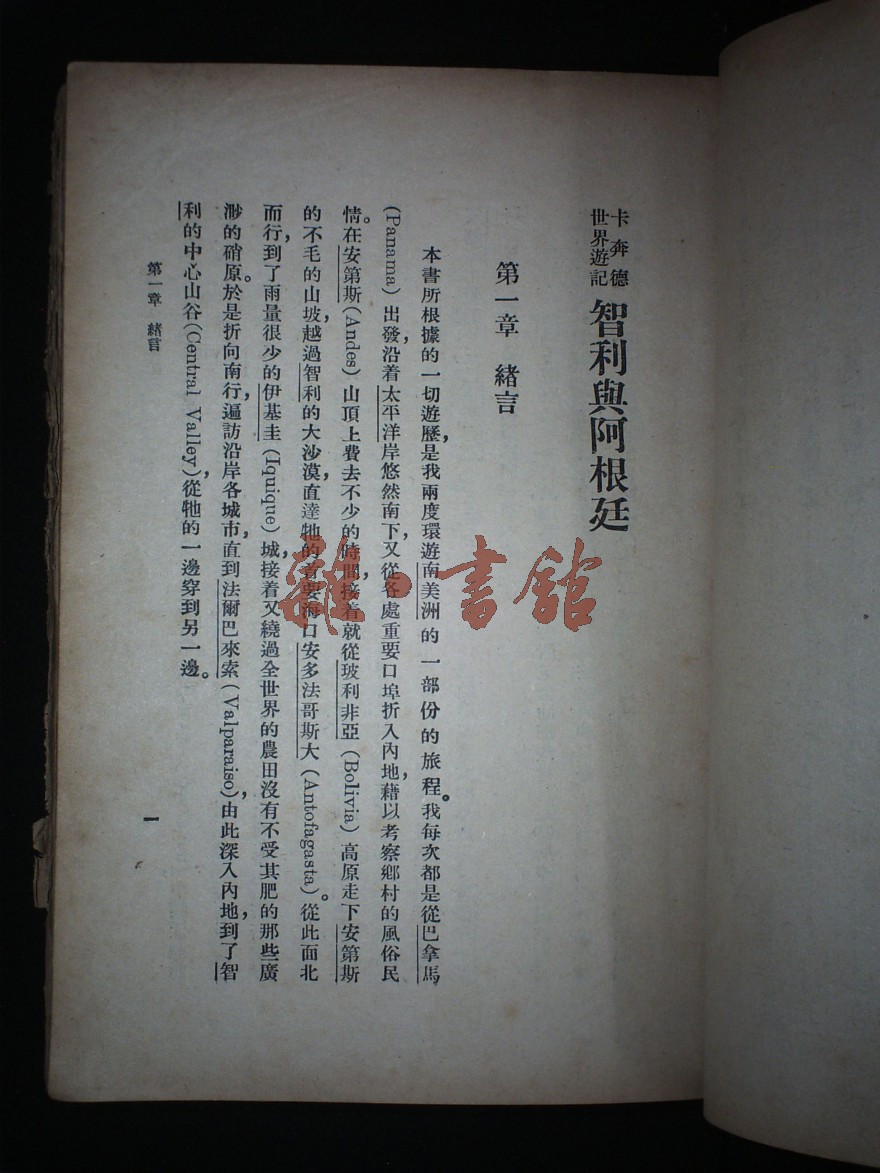 卡奔德
世界遊記
智利與阿根廷
第一章　緒言
本書所根據的一切遊歷，是我兩度環遊南美洲的一部份的旅程。我每次都是從巴拿馬
(Panama)出發，沿着太平洋岸悠然南下，又從各處重要口埠折入內地，藉以考察鄉村的風俗民
情。在安第斯(Andes)山頂上費去不少的時間，接着就從玻利非亞(Bolivia)高原走下安第斯
的不毛的山坡，越過智利的大沙漠，直達牠的首要海口安多法哥斯大(Antofagasta)。從此面北
而行，到了雨量很少的伊基圭(Iquique)城，接着又繞過全世界的農田沒有不受其肥的那些廣
渺的硝原。於是折向南行，遍訪沿岸各城市，直到法爾巴來索(Valparaiso)，由此深入內地，到了智
利的中心山谷(Central Valley)，從牠的一邊穿到另一邊。
第一章　緒言
一
雜·書館